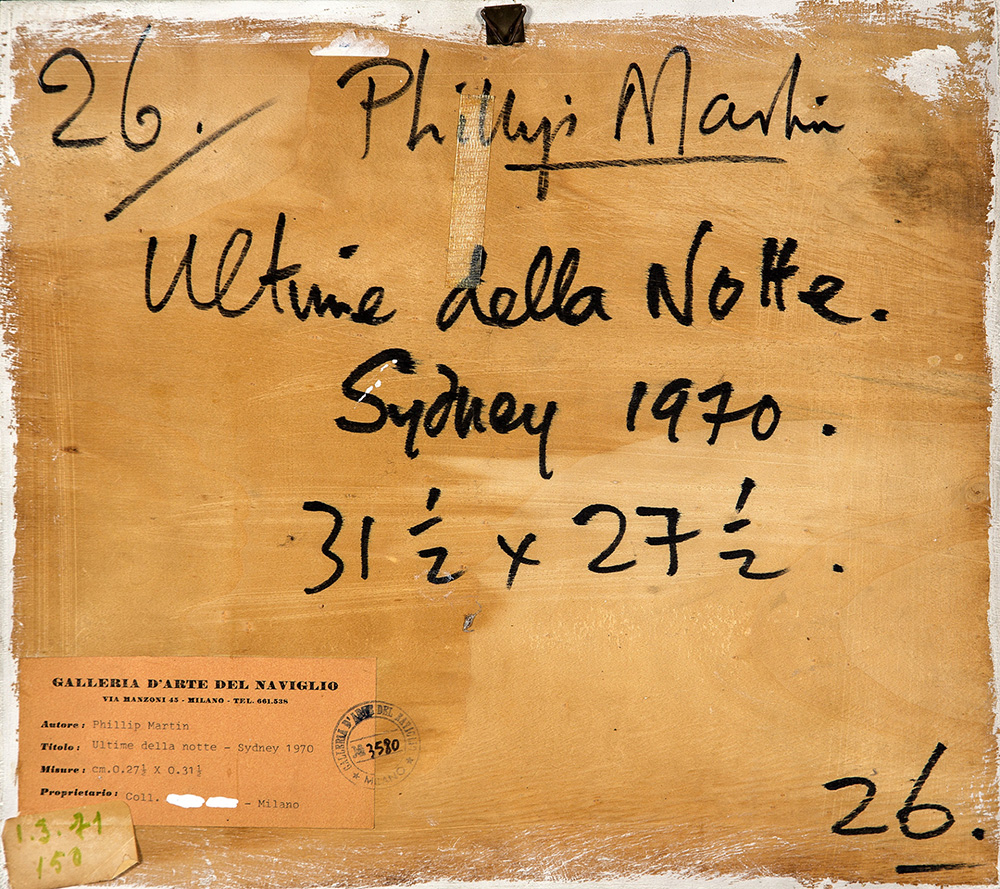 26. Phillip Martin
Ultime della Notte.
Sydney 1970.
31 ½ x 27 ½.
GALLERIA D'ARTE DEL NAVIGLIO
VIA MANZONI 45 - MILANO - TEL. 661.538
Autore: Phillip Martin
Titolo: Ultime della notte - Sydney 1970
Misure: cm.0.27½ X 0.31½
Proprietario: Coll. - Milano
GALLERIA D'ARTE DEL NAVIGLIO
3580
★ MILANO ★
1.3.71
150
26.